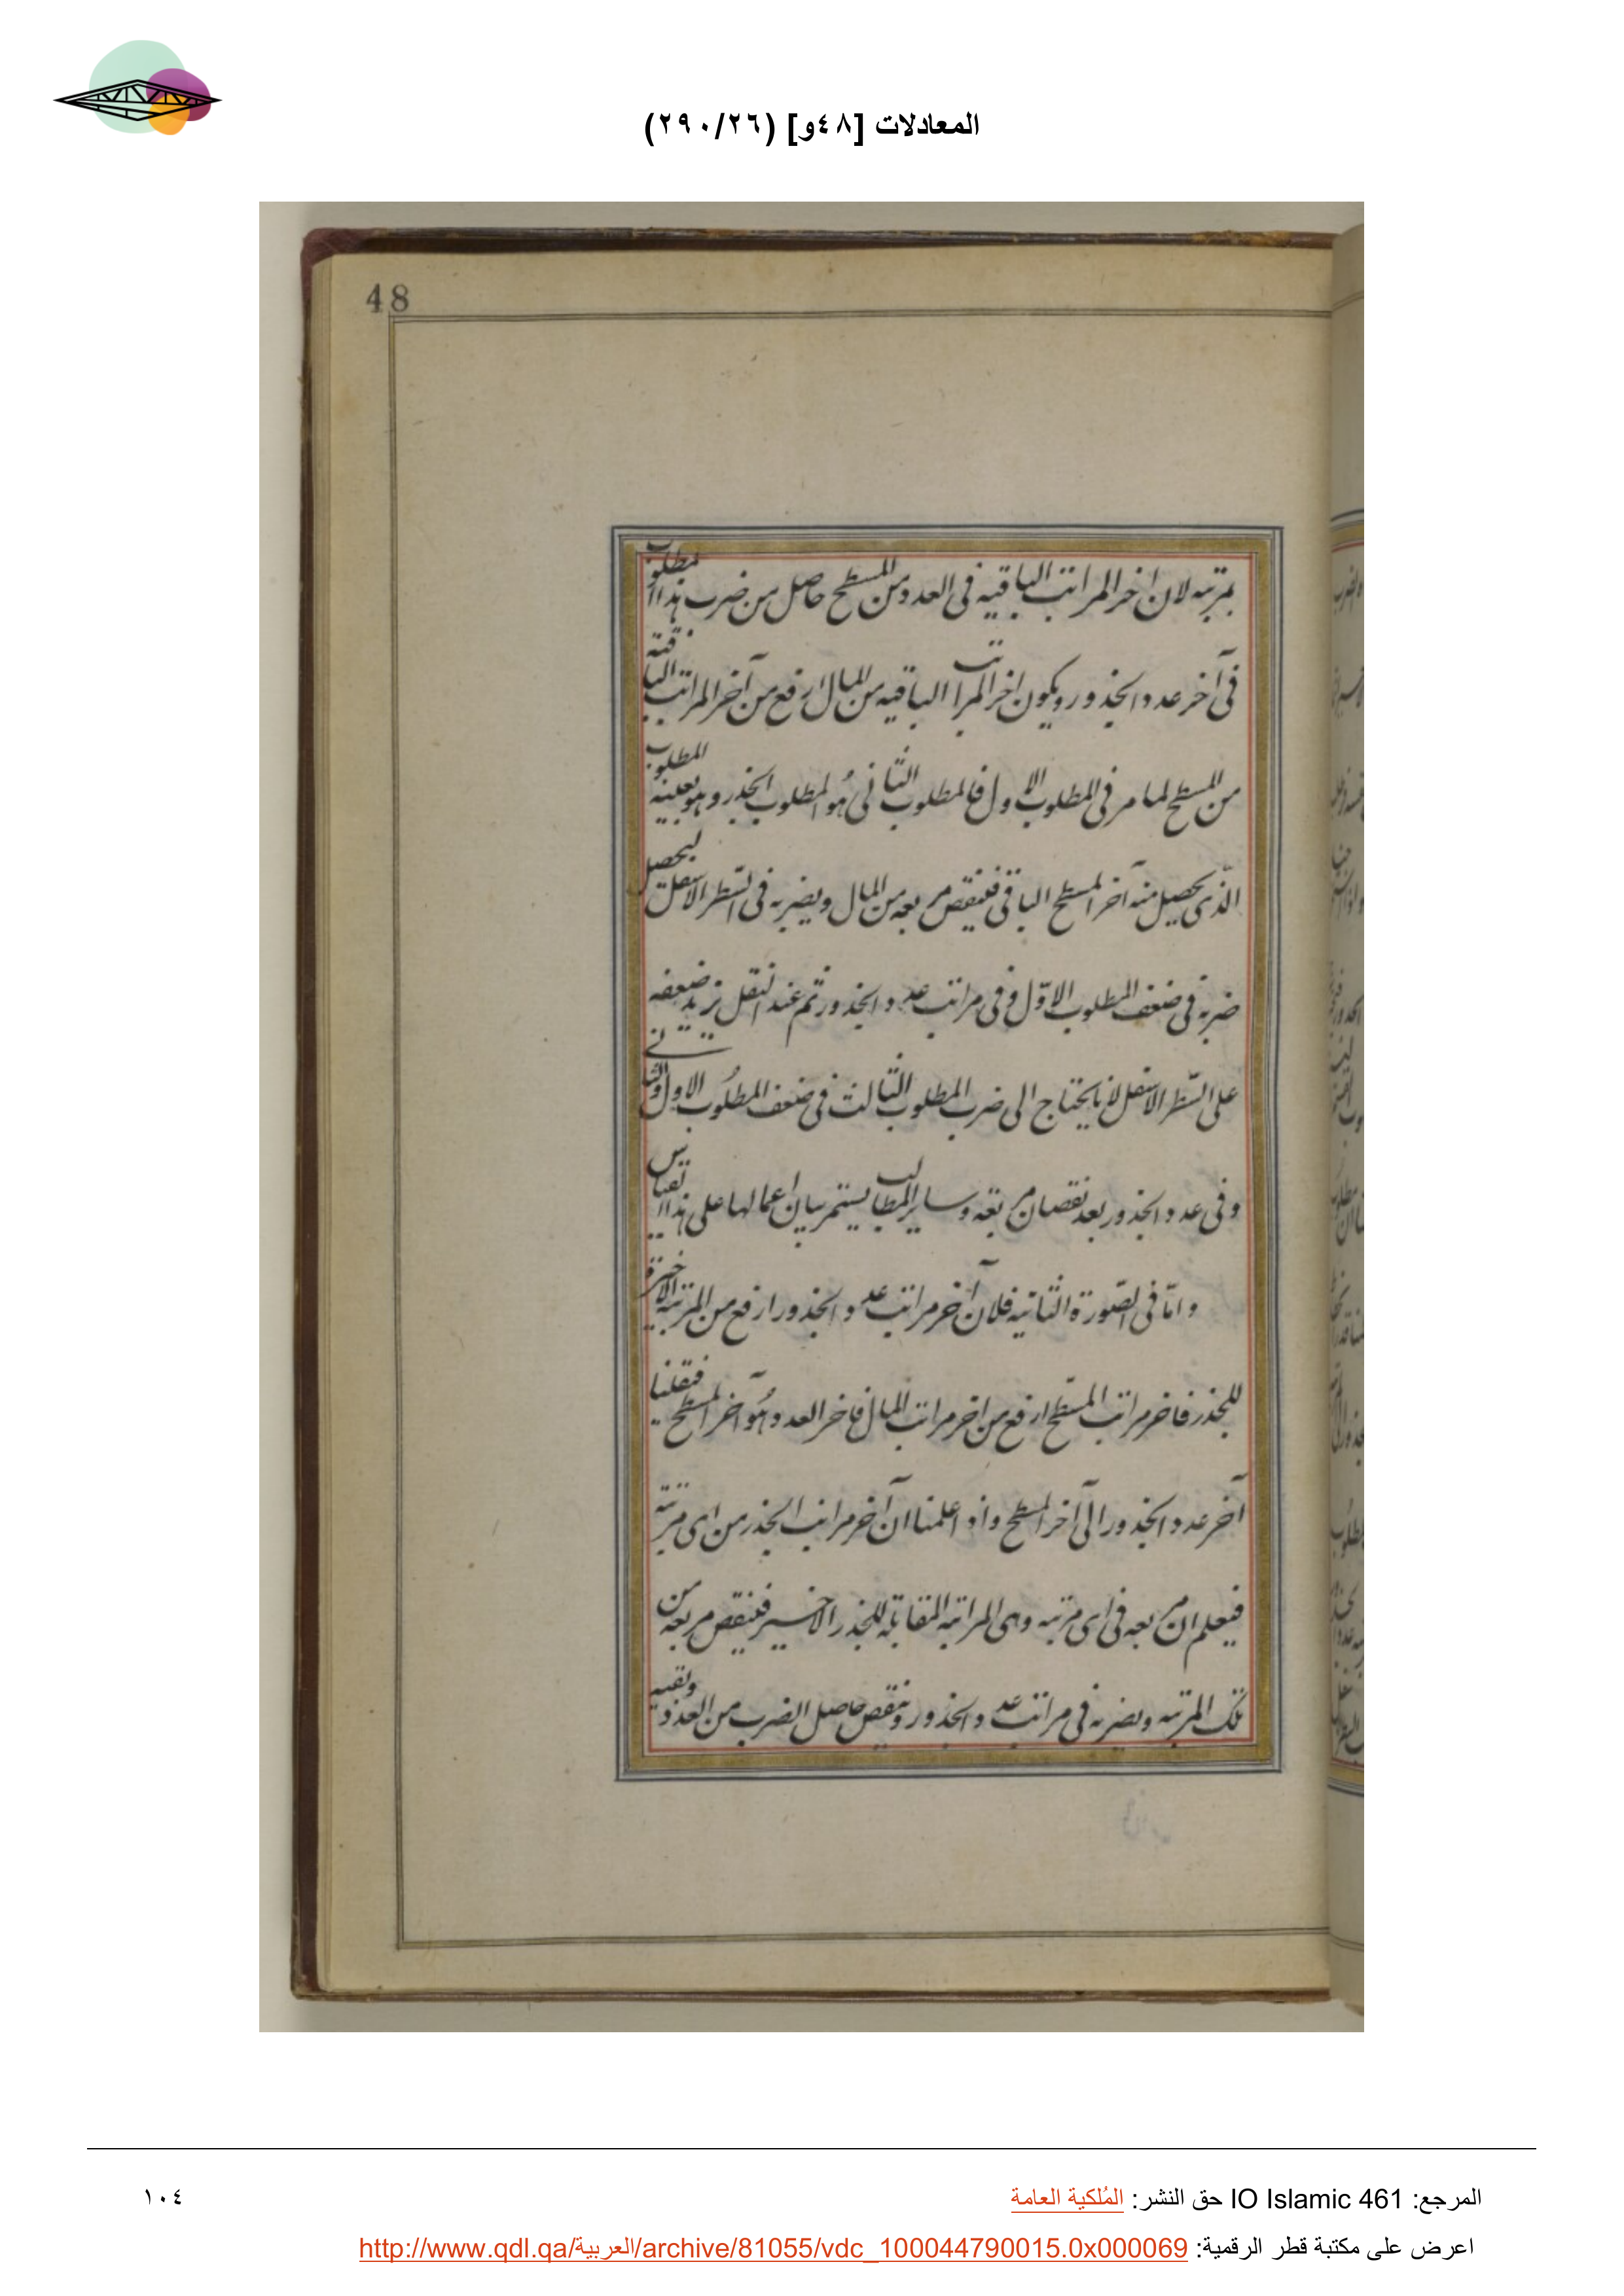 المعادلات [٤٨و] (٢٩٠/٢٦)
48
بمرتبه لان اخر المراتب الباقيه فى العدد من المسطح حاصل من ضرب هذا المطلوب
فى آخر عدد الجذور ويكون اخر المراتب الباقيه من المال ارفع من آخر المراتب الباقية
من المسطح لما مر فى المطلوب الاول فالمطلوب الثانى هو المطلوب الجذر وهو بعينه المطلوب
الذى يحصل منه آخر المسطح الباقى فننقص مربعه من المال ويضربه فى السّطر الاسفل ليحصل
ضربه فى ضعف المطلوب الاوّل وفى مراتب عدد الجذور ثم عند النقل نزيد ضعفه
على السّطر الاسفل لانا نحتاج الى ضرب المطلوب الثالث فى ضعف المطلوب الاول والثانى
وفى عدد الجذور بعد نقصان مربعه وساير المطالب يستمر بيان اعمالها على هذا القياس
وامّا فى الصّورة الثانيه فلان آخر مراتب عدد الجذور ارفع من المرتبه الاخيرة
للجذر فاخر مراتب المسطّح ارفع من اخر مراتب المال فاخر العدد هو آخر المسطح فنقلنا
آخر عدد الجذور الى آخر المسطح واذا علمنا ان آخر مراتب الجذر من اى مرتبة
فيعلم ان مربعه فى اى مرتبه وهى المراتبه المقابلة للجذر الاخير فينقص مربعه من
تلك المرتبه ويضربه فى مراتب عدد الجذور وننقص حاصل الضرب من العدد وبقيه
المرجع: IO Islamic 461 حق النشر: المُلكية العامة
١٠٤
اعرض على مكتبة قطر الرقمية: http://www.qdl.qa/العربية/archive/81055/vdc_100044790015.0x000069